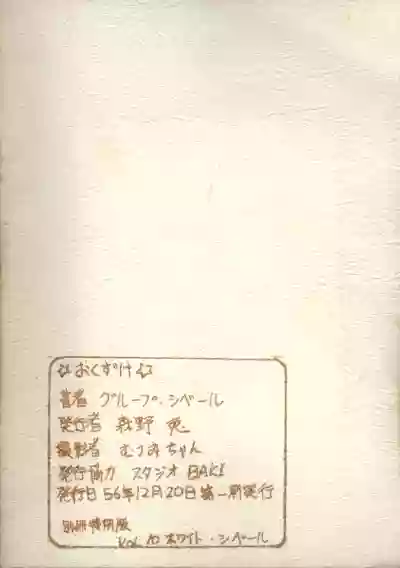 おくずけ
著者 グループ・シベール
発行者 萩野 兎
撮影者 むつみちゃん
発行協力 スタジオ BAKI
発行日 56年12月20日 第一刷発行
別冊特別版
Vol. ホワイト・シベール